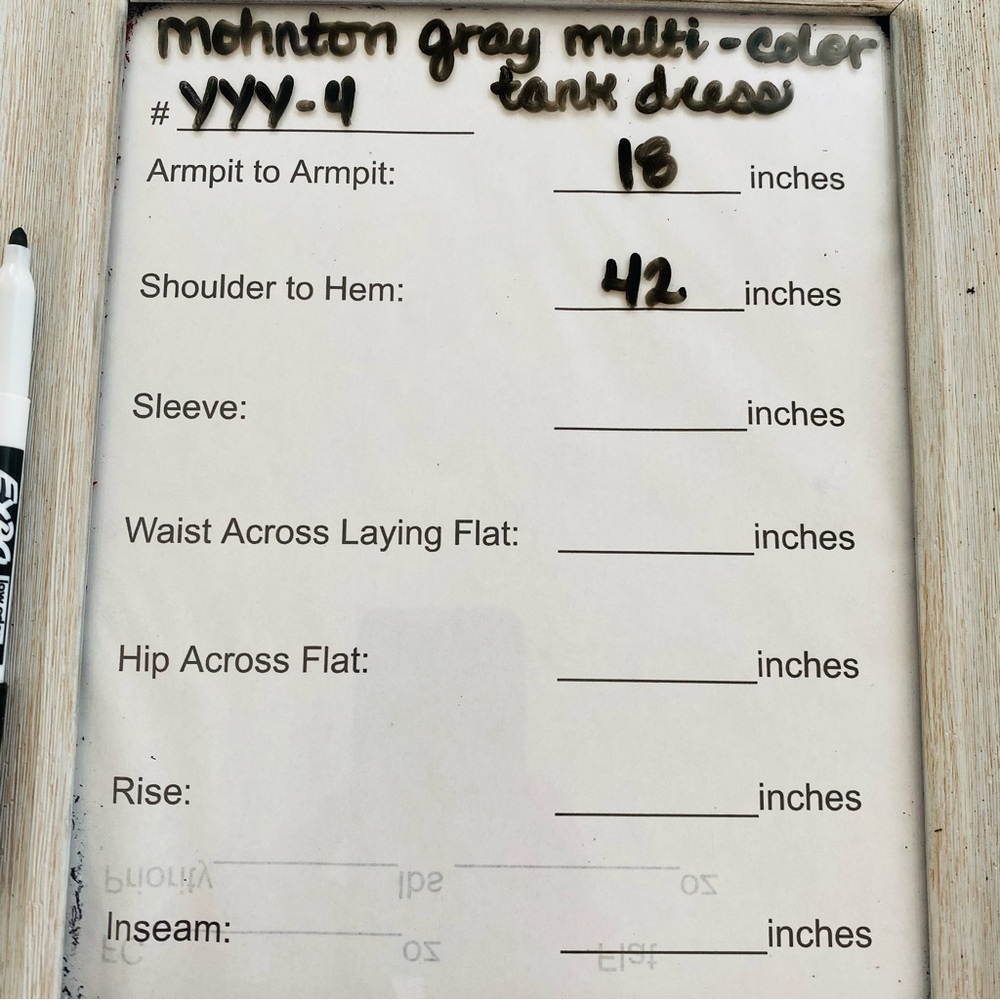 mohnton gray multi-color
tank dress
# YYY-4
Armpit to Armpit: 18 inches
Shoulder to Hem: 42 inches
Sleeve: ____________ inches
Waist Across Laying Flat: ____________ inches
Hip Across Flat: ____________ inches
Rise: ____________ inches
Priority ____________ lbs ____________ oz
Inseam: ____________ inches
FC ____________ oz Flat
EXPO low odor